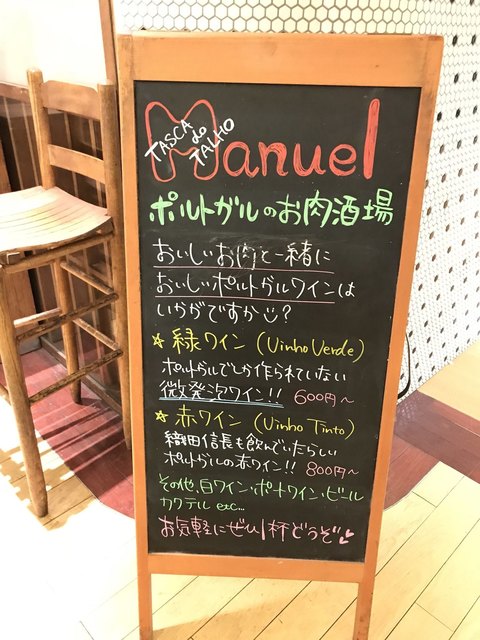 Manuel
TASCA do TALHO
ポルトガルのお肉酒場
おいしいお肉と一緒に
おいしいポルトガルワインは
いかがですか?
☆ 緑ワイン (Vinho Verde)
ポルトガルでしか作られていない
微発泡ワイン!! 600円〜
☆ 赤ワイン (Vinho Tinto)
織田信長も飲んでいたらしい
ポルトガルの赤ワイン!! 800円〜
その他、白ワイン・ポートワイン・ビール
カクテル etc...
お気軽にぜひ1杯どうぞ♡